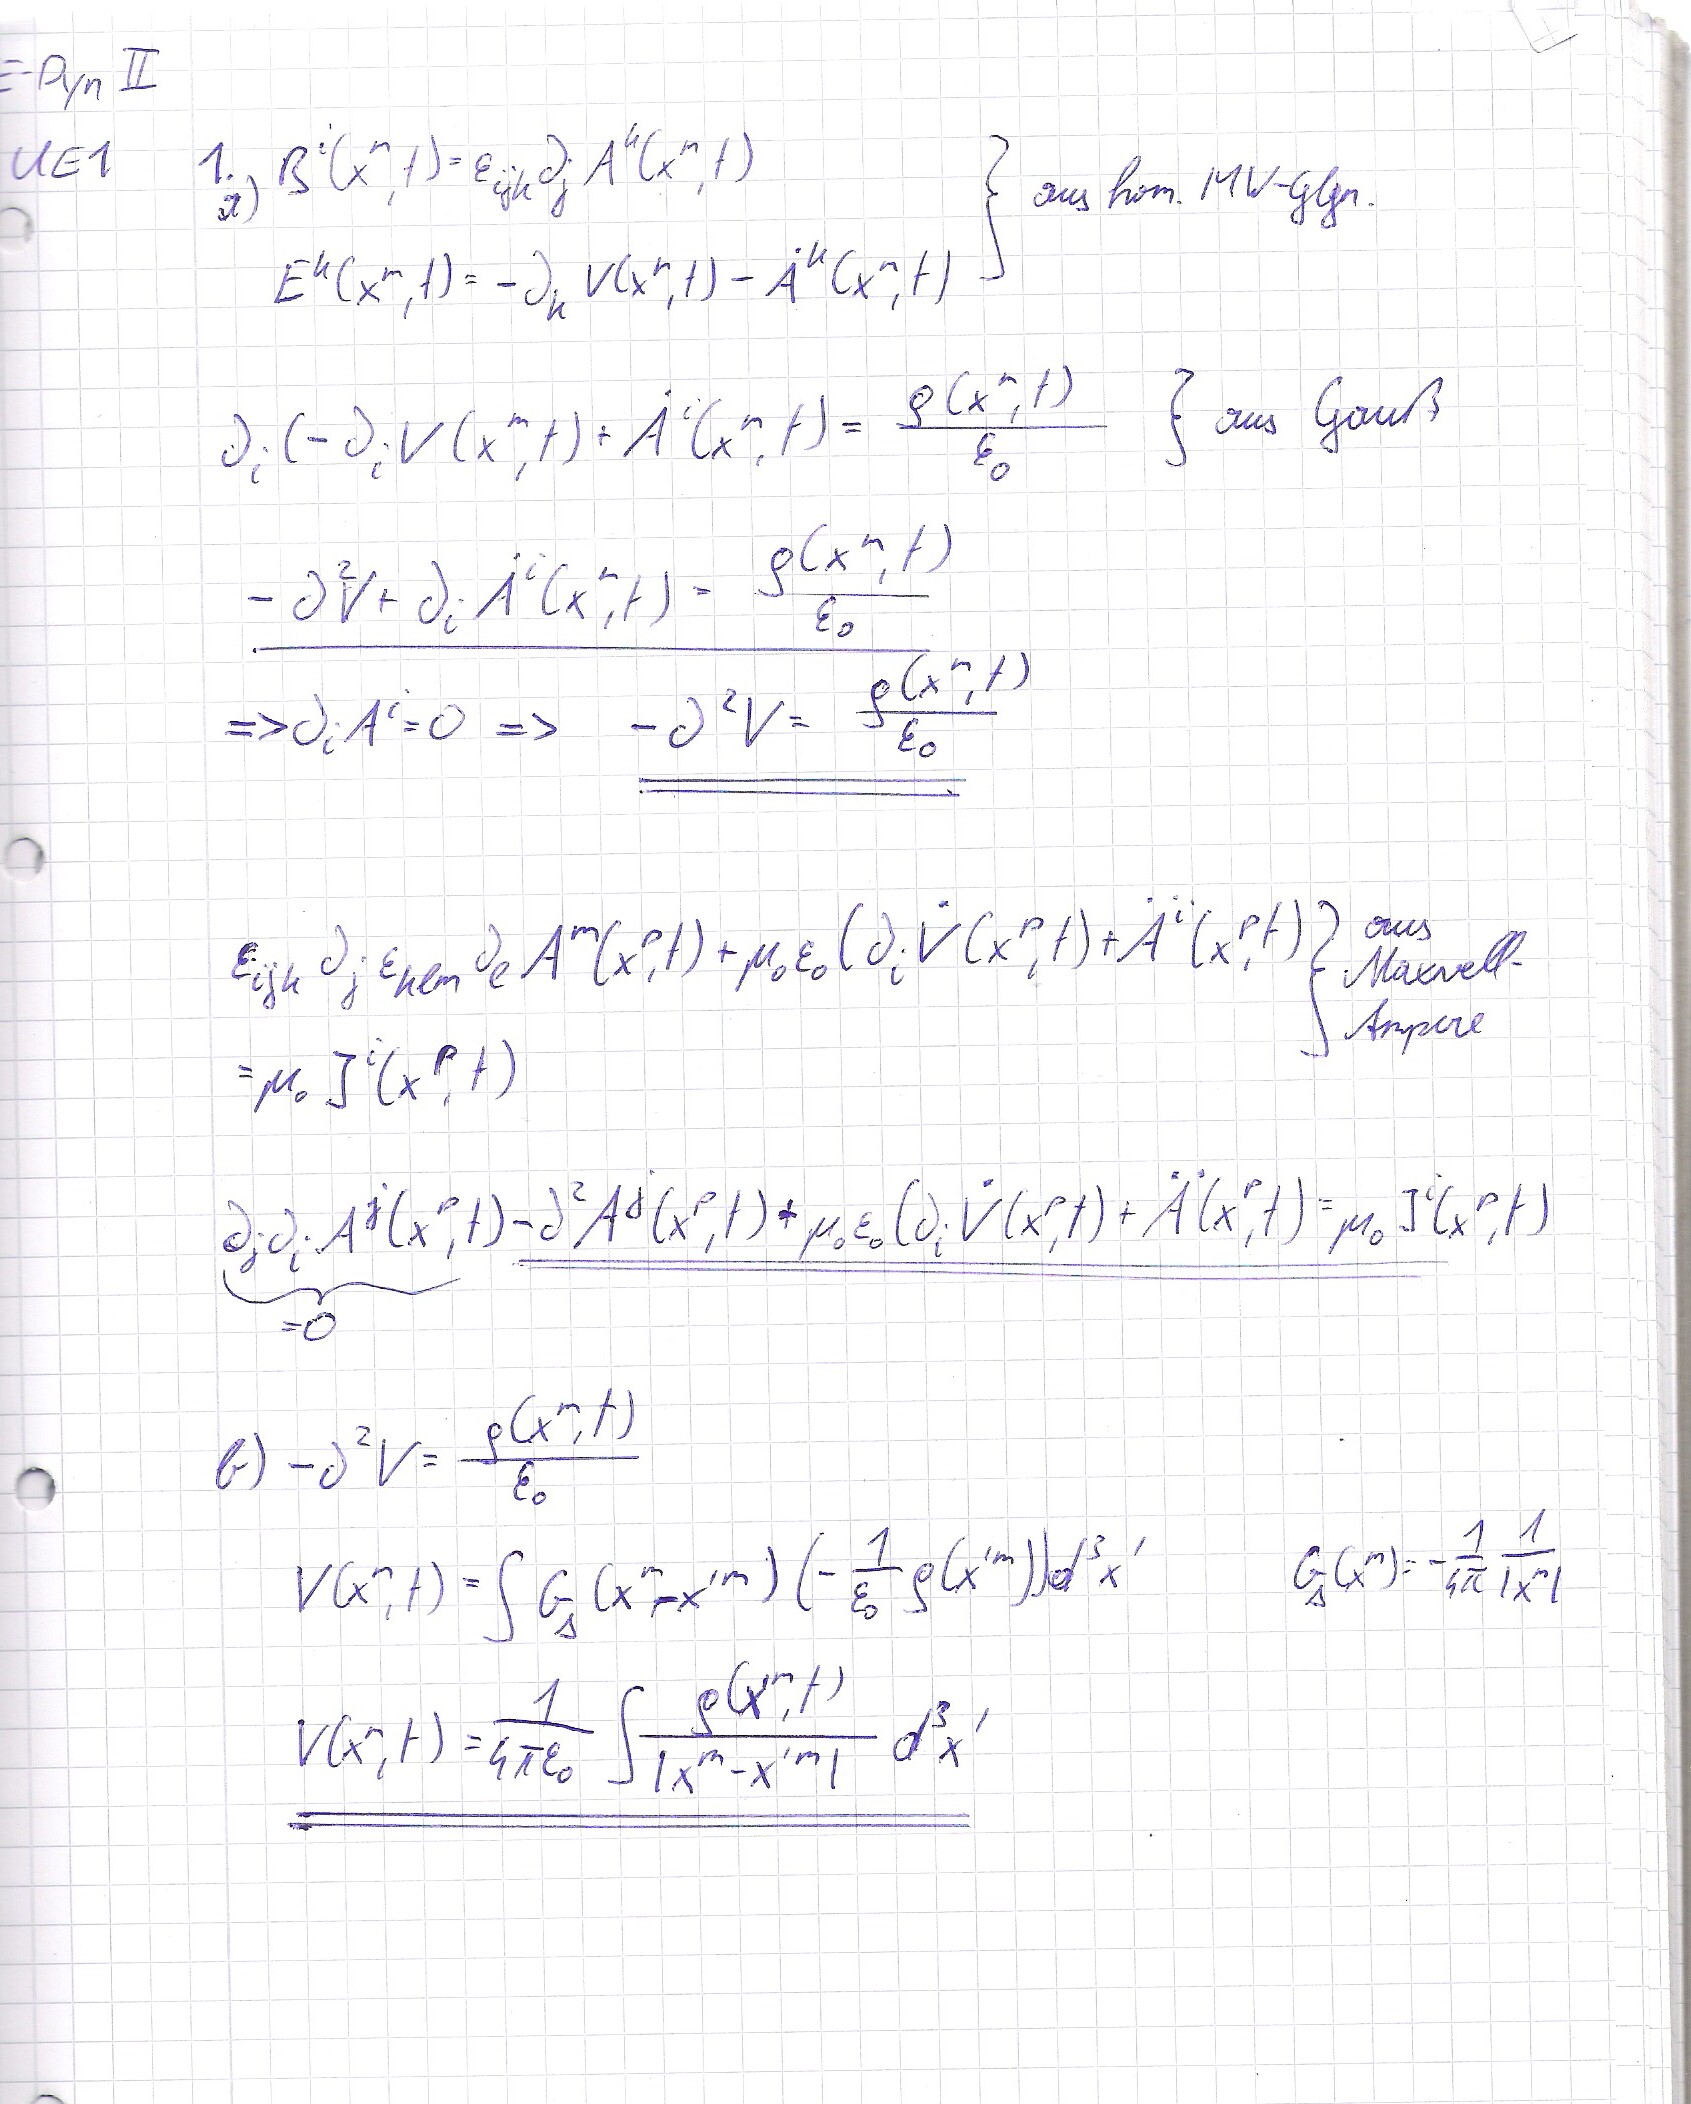 E-Dyn II
UE1 1. a) Bⁱ(xᵐ,t) = ε_ijk ∂_j Aᵏ(xᵐ,t) } aus hom. MW-Glgn.
Eᵏ(xᵐ,t) = -∂_k V(xᵐ,t) - Ȧᵏ(xᵐ,t)
∂_i (-∂_i V(xᵐ,t) + Ȧⁱ(xᵐ,t) = ρ(xᵐ,t)/ε₀ } aus Gauß
-∂²V + ∂_i Ȧⁱ(xᵐ,t) = ρ(xᵐ,t)/ε₀
=> ∂_i Aⁱ = 0 => -∂²V = ρ(xᵐ,t)/ε₀
ε_ijk ∂_j ε_klm ∂_l Aᵐ(xᵖ,t) + μ₀ε₀(∂_i V̇(xᵖ,t) + Äⁱ(xᵖ,t) } aus Maxwell-Ampere
= μ₀ Jⁱ(xᵖ,t)
∂_j ∂_i Aʲ(xᵖ,t) - ∂²Aʲ(xᵖ,t) + μ₀ε₀(∂_i V̇(xᵖ,t) + Äⁱ(xᵖ,t) = μ₀ Jⁱ(xᵖ,t)
=0
b) -∂²V = ρ(xᵐ,t)/ε₀
V(xᵐ,t) = ∫ G_Δ(xᵐ-x'ᵐ) (-1/ε₀ ρ(x'ᵐ)) d³x' G_Δ(xᵐ) = -1/4π 1/|xᵐ|
V(xᵐ,t) = 1/4πε₀ ∫ ρ(x'ᵐ,t)/|xᵐ-x'ᵐ| d³x'